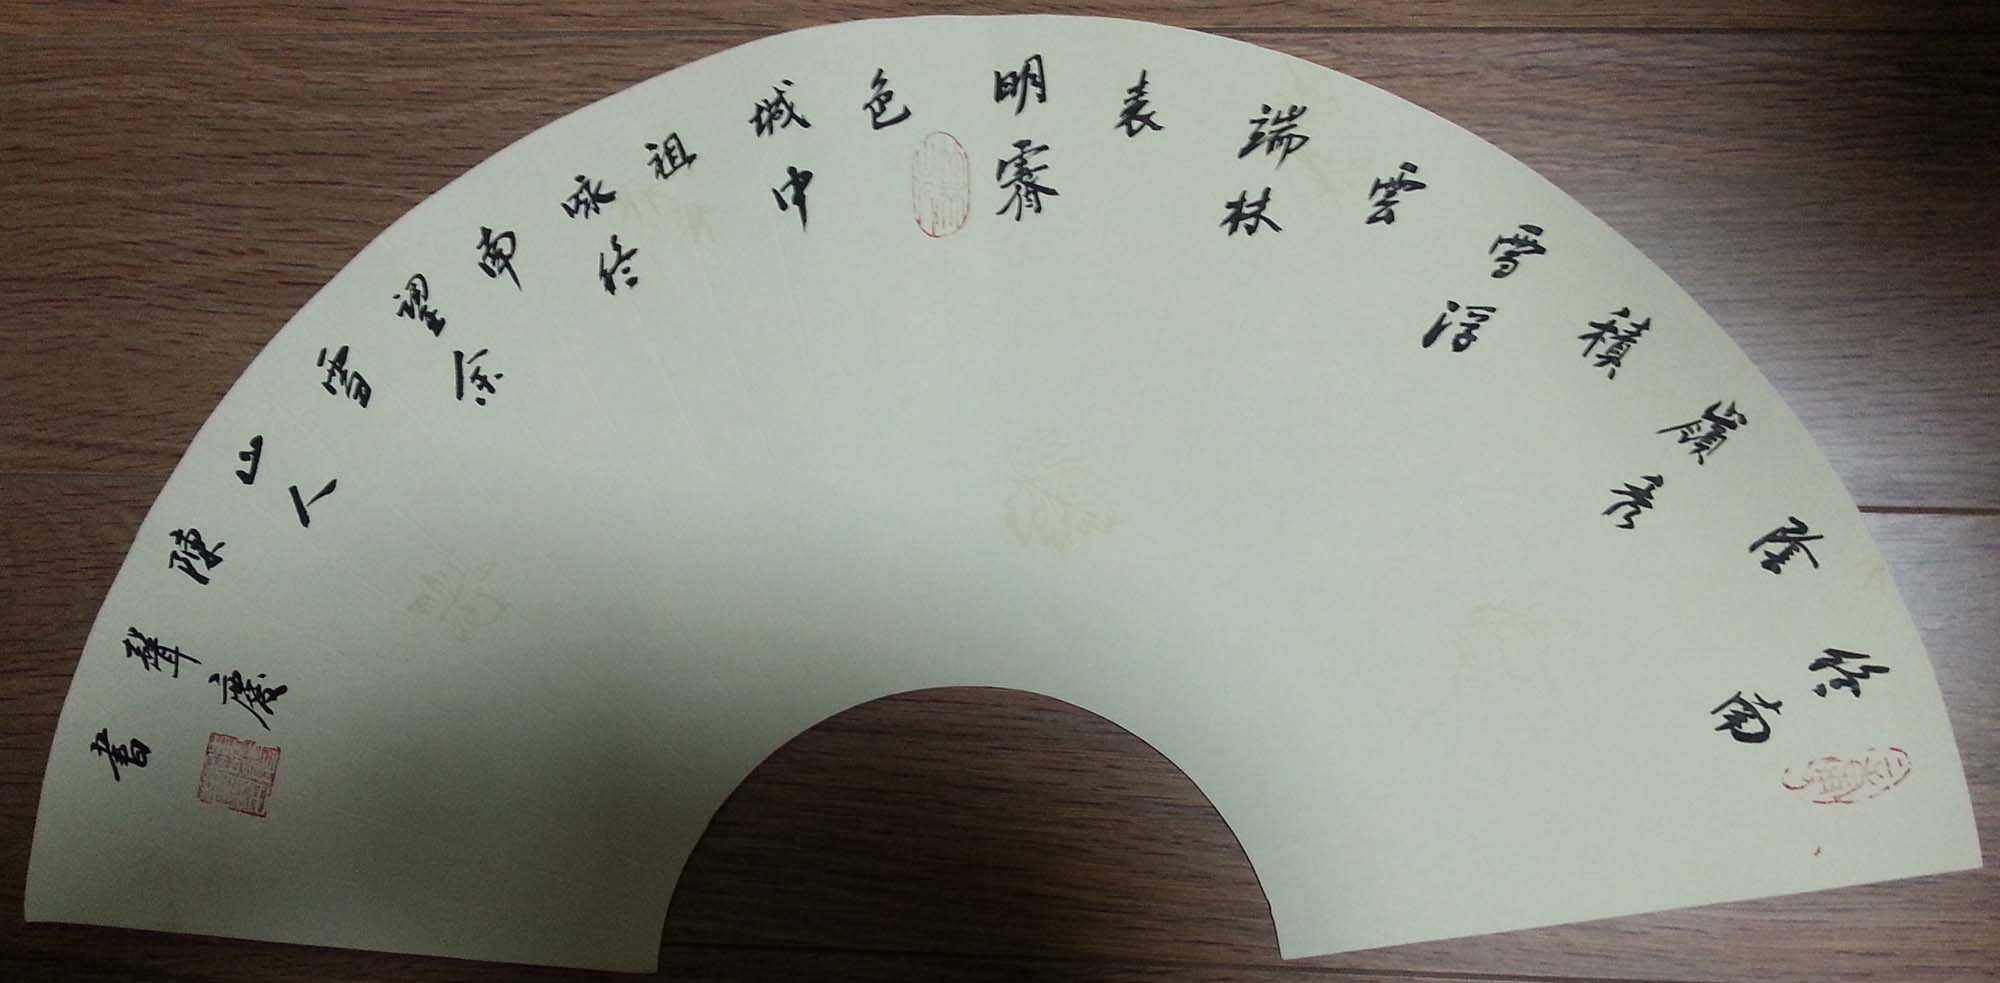 終南
陰
嶺秀
積
雪浮
雲
端林
表
明霽
色
城中
祖
詠終
南
望余
雪
山人
陳
慶
書